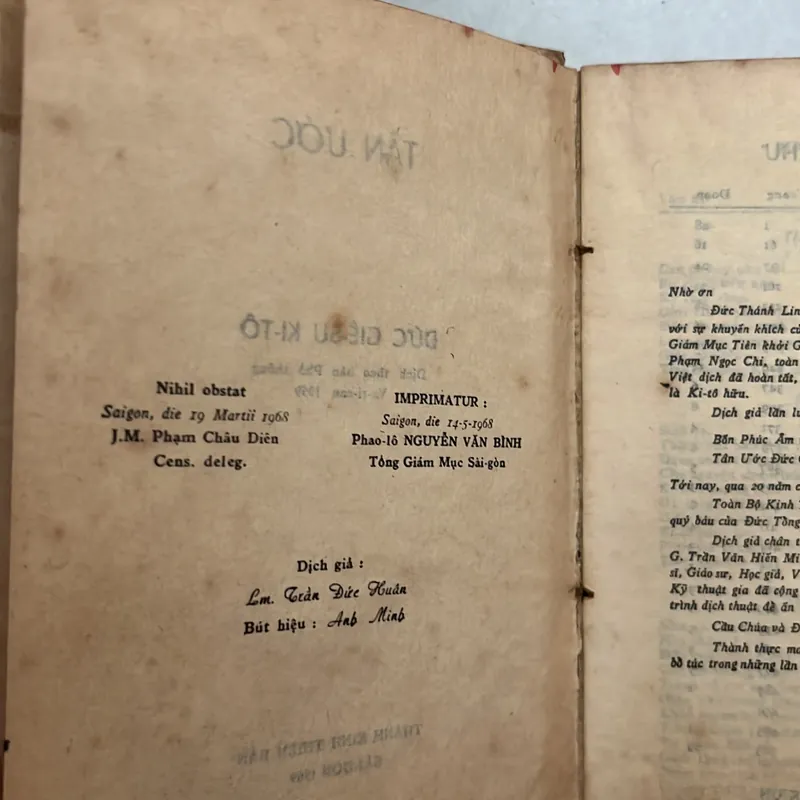 Nihil obstat
Saigon, die 19 Martii 1968
J.M. Phạm Châu Diên
Cens. deleg.
IMPRIMATUR :
Saigon, die 14-5-1968
Phao-lô NGUYỄN VĂN BÌNH
Tổng Giám Mục Sài-gòn
Dịch giả :
Lm. Trần Đức Huân
Bút hiệu : Anh Minh
TÂN ƯỚC
ĐỨC GIÊSU KI-TÔ
Nhờ ơn
Đức Thánh Lin
với sự khuyến khích củ
Giám Mục Tiên khởi G
Phạm Ngọc Chi, toàn
Việt dịch đã hoàn tất,
là Ki-tô hữu.
Dịch giả lần lu
Bốn Phúc Âm
Tân Ước Đức
Tới nay, qua 20 năm c
Toàn Bộ Kinh
quý báu của Đức Tổng
Dịch giả chân t
G. Trần Văn Hiến Mi
sĩ, Giáo sư, Học giả, V
Kỹ thuật gia đã cộng
trình dịch thuật để ấn
Cầu Chúa và Đ
Thành thực mo
bồ túc trong những lần